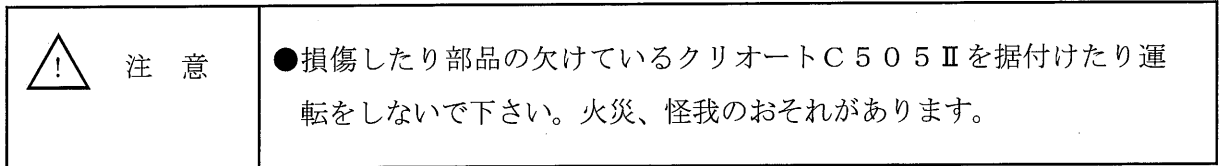 注　意
●損傷したり部品の欠けているクリオートＣ５０５Ⅱを据付けたり運
転をしないで下さい。火災、怪我のおそれがあります。